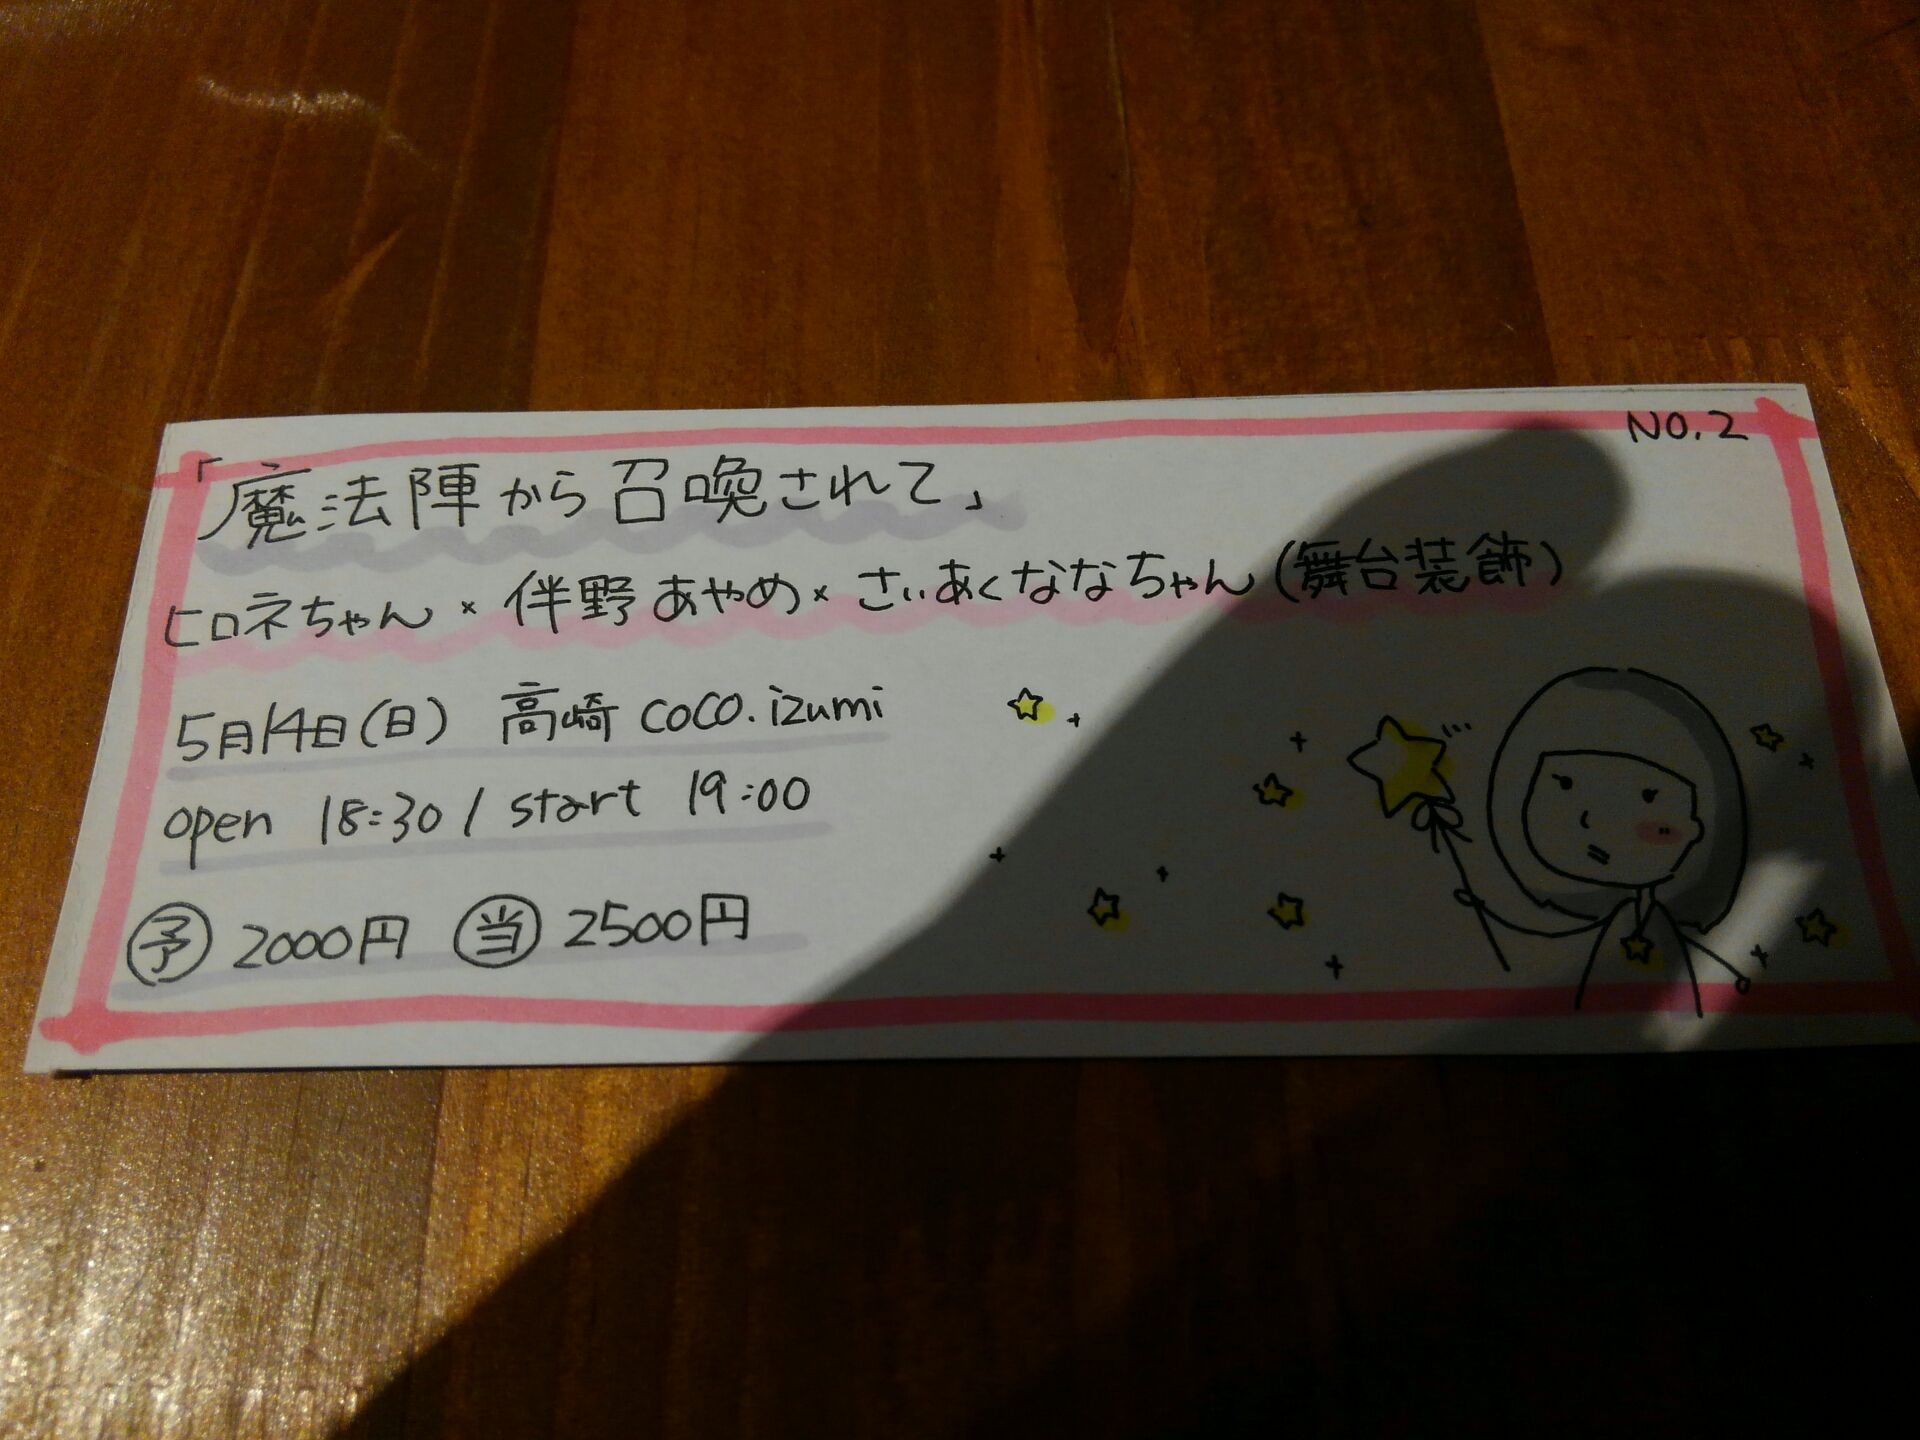 NO.2
「魔法陣から召喚されて」
ヒロネちゃん×伴野あやめ×さいあくななちゃん(舞台装飾)
5月14日(日) 高崎 coco.izumi
open 18:30 / start 19:00
予 2000円 当 2500円